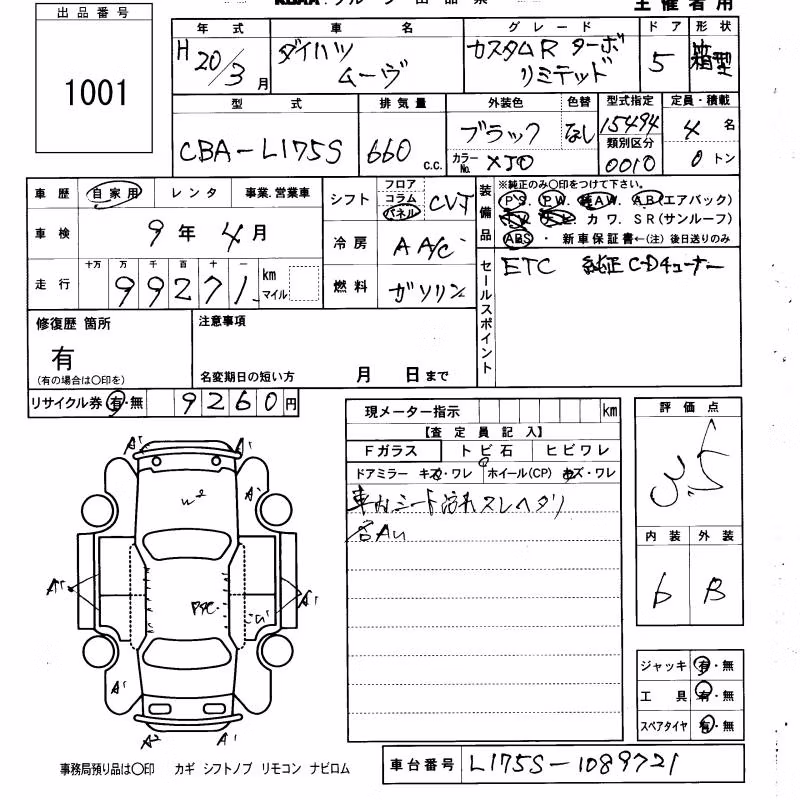 出品番号
1001
主催者用
年式 車名 グレード ドア 形状
H20/3月 ダイハツ ムーヴ カスタムR ターボ リミテッド 5 箱型
型式 排気量 外装色 色替 型式指定 定員・積載
CBA-L175S 660 c.c. ブラック なし 15494 4名
カラーNo. X50 類別区分 0010 0トン
車歴 自家用 レンタ 事業.営業車
シフト フロア コラム パネル CVT
装備品 ※純正のみ〇印をつけて下さい。
PS. PW. AW. AB(エアバック)
カワ. SR(サンルーフ)
ABS・ 新車保証書←(注) 後日送りのみ
車検 9年4月
冷房 AA/C
走行 十万 万 千 百 十 一
99271 km マイル
燃料 ガソリン
セールスポイント
ETC 純正CDチューナー
修復歴 箇所
有
(有の場合は〇印を)
注意事項
名変期日の短い方 月 日まで
リサイクル券 有・無 9260円
現メーター指示 km
【査定員記入】
Fガラス トビ石 ヒビワレ
ドアミラー キズ・ワレ ホイール(CP) キズ・ワレ
シート汚れスレヘタリ
各AU
評価点
3.5
内装 外装
6 B
A' A'
W2
A'
A' A'
A'
A2 A'
ジャッキ 有・無
工具 有・無
スペアタイヤ 有・無
事務局預り品は〇印 カギ シフトノブ リモコン ナビロム
車台番号 L175S-1089721